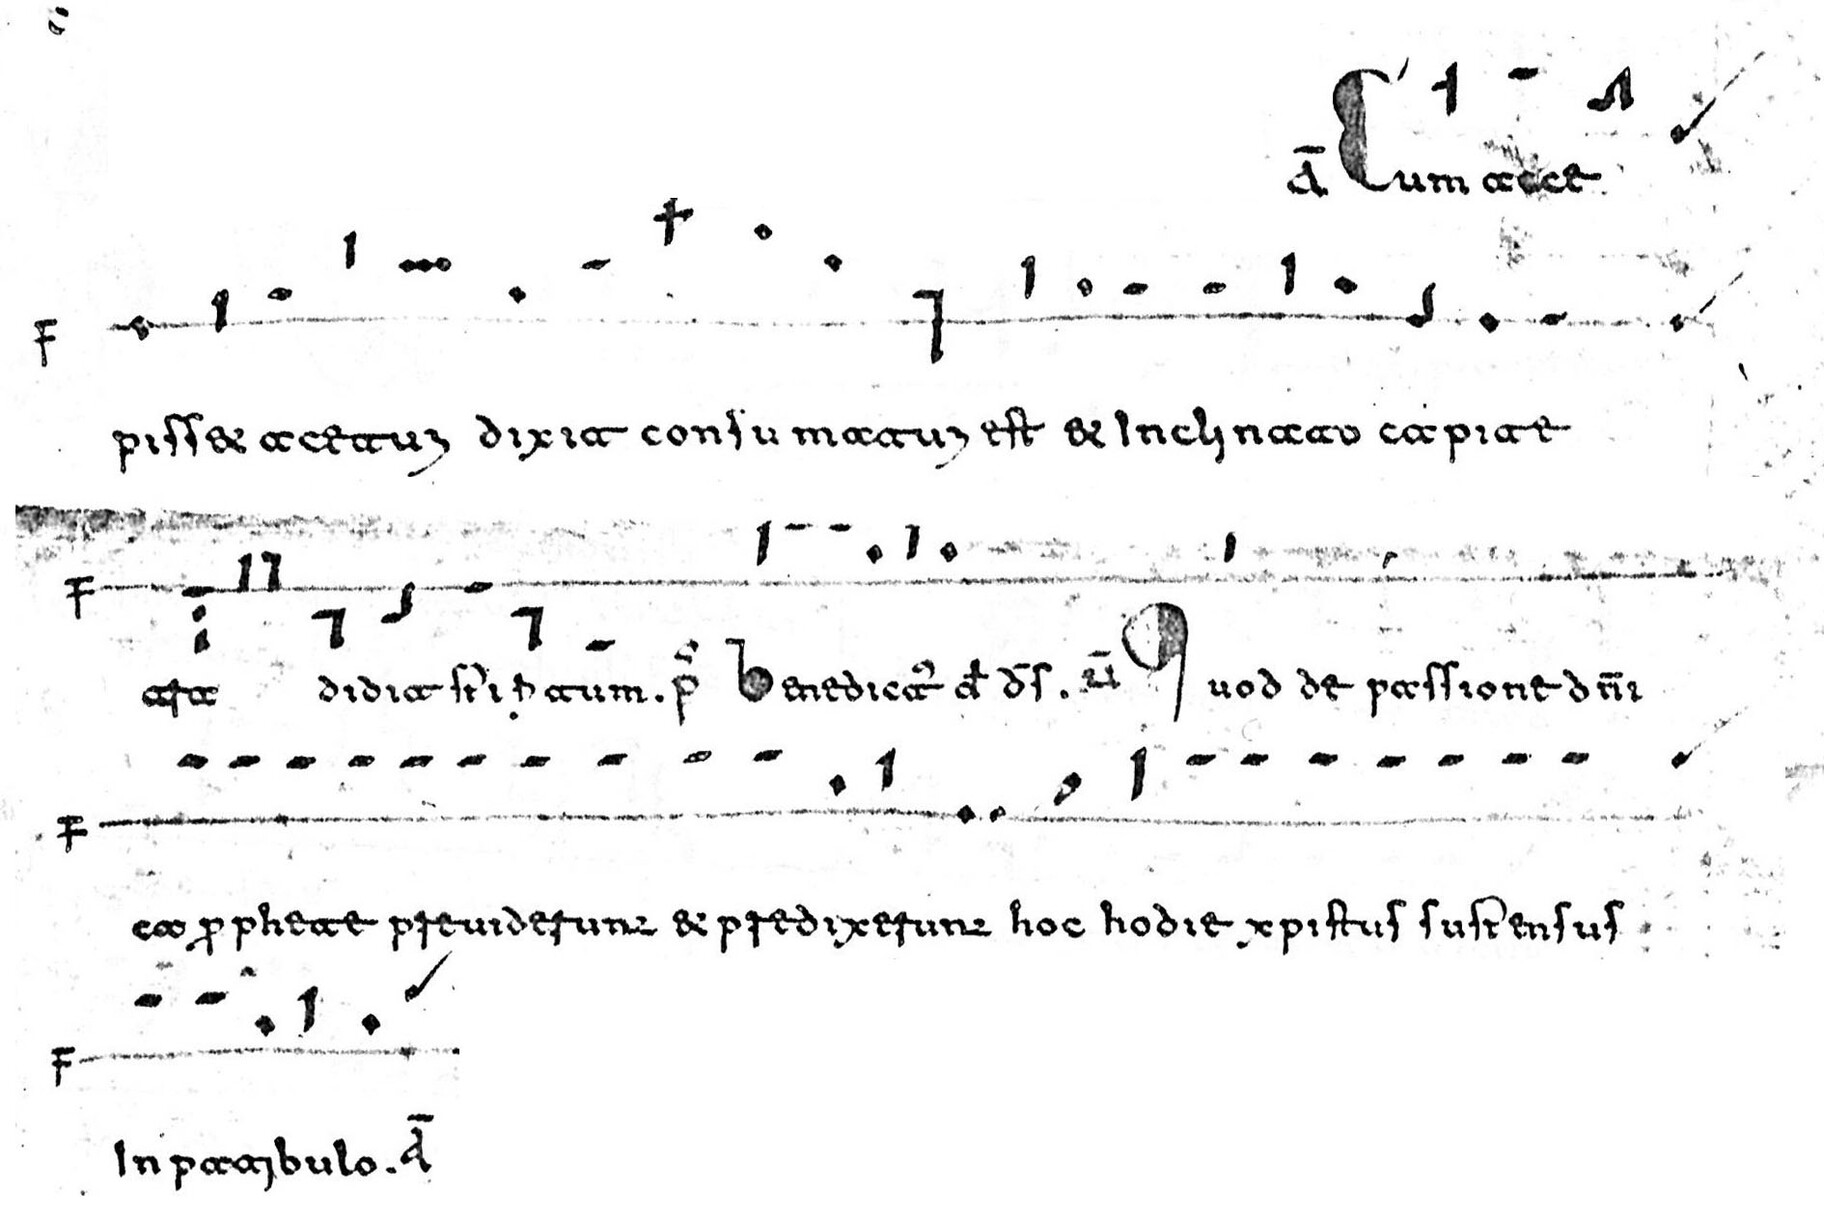 A̅ Cum acce
pisset acetuȝ dixit consumatuȝ est & Inclinato capite
tra didit sp̄m tuum. p̄s Benedict' d̄s. ū Quod de passione dn̄i
ca prophete preuiderunt & predixerunt hoc hodie xpistus suspensus
In patibulo. A̅